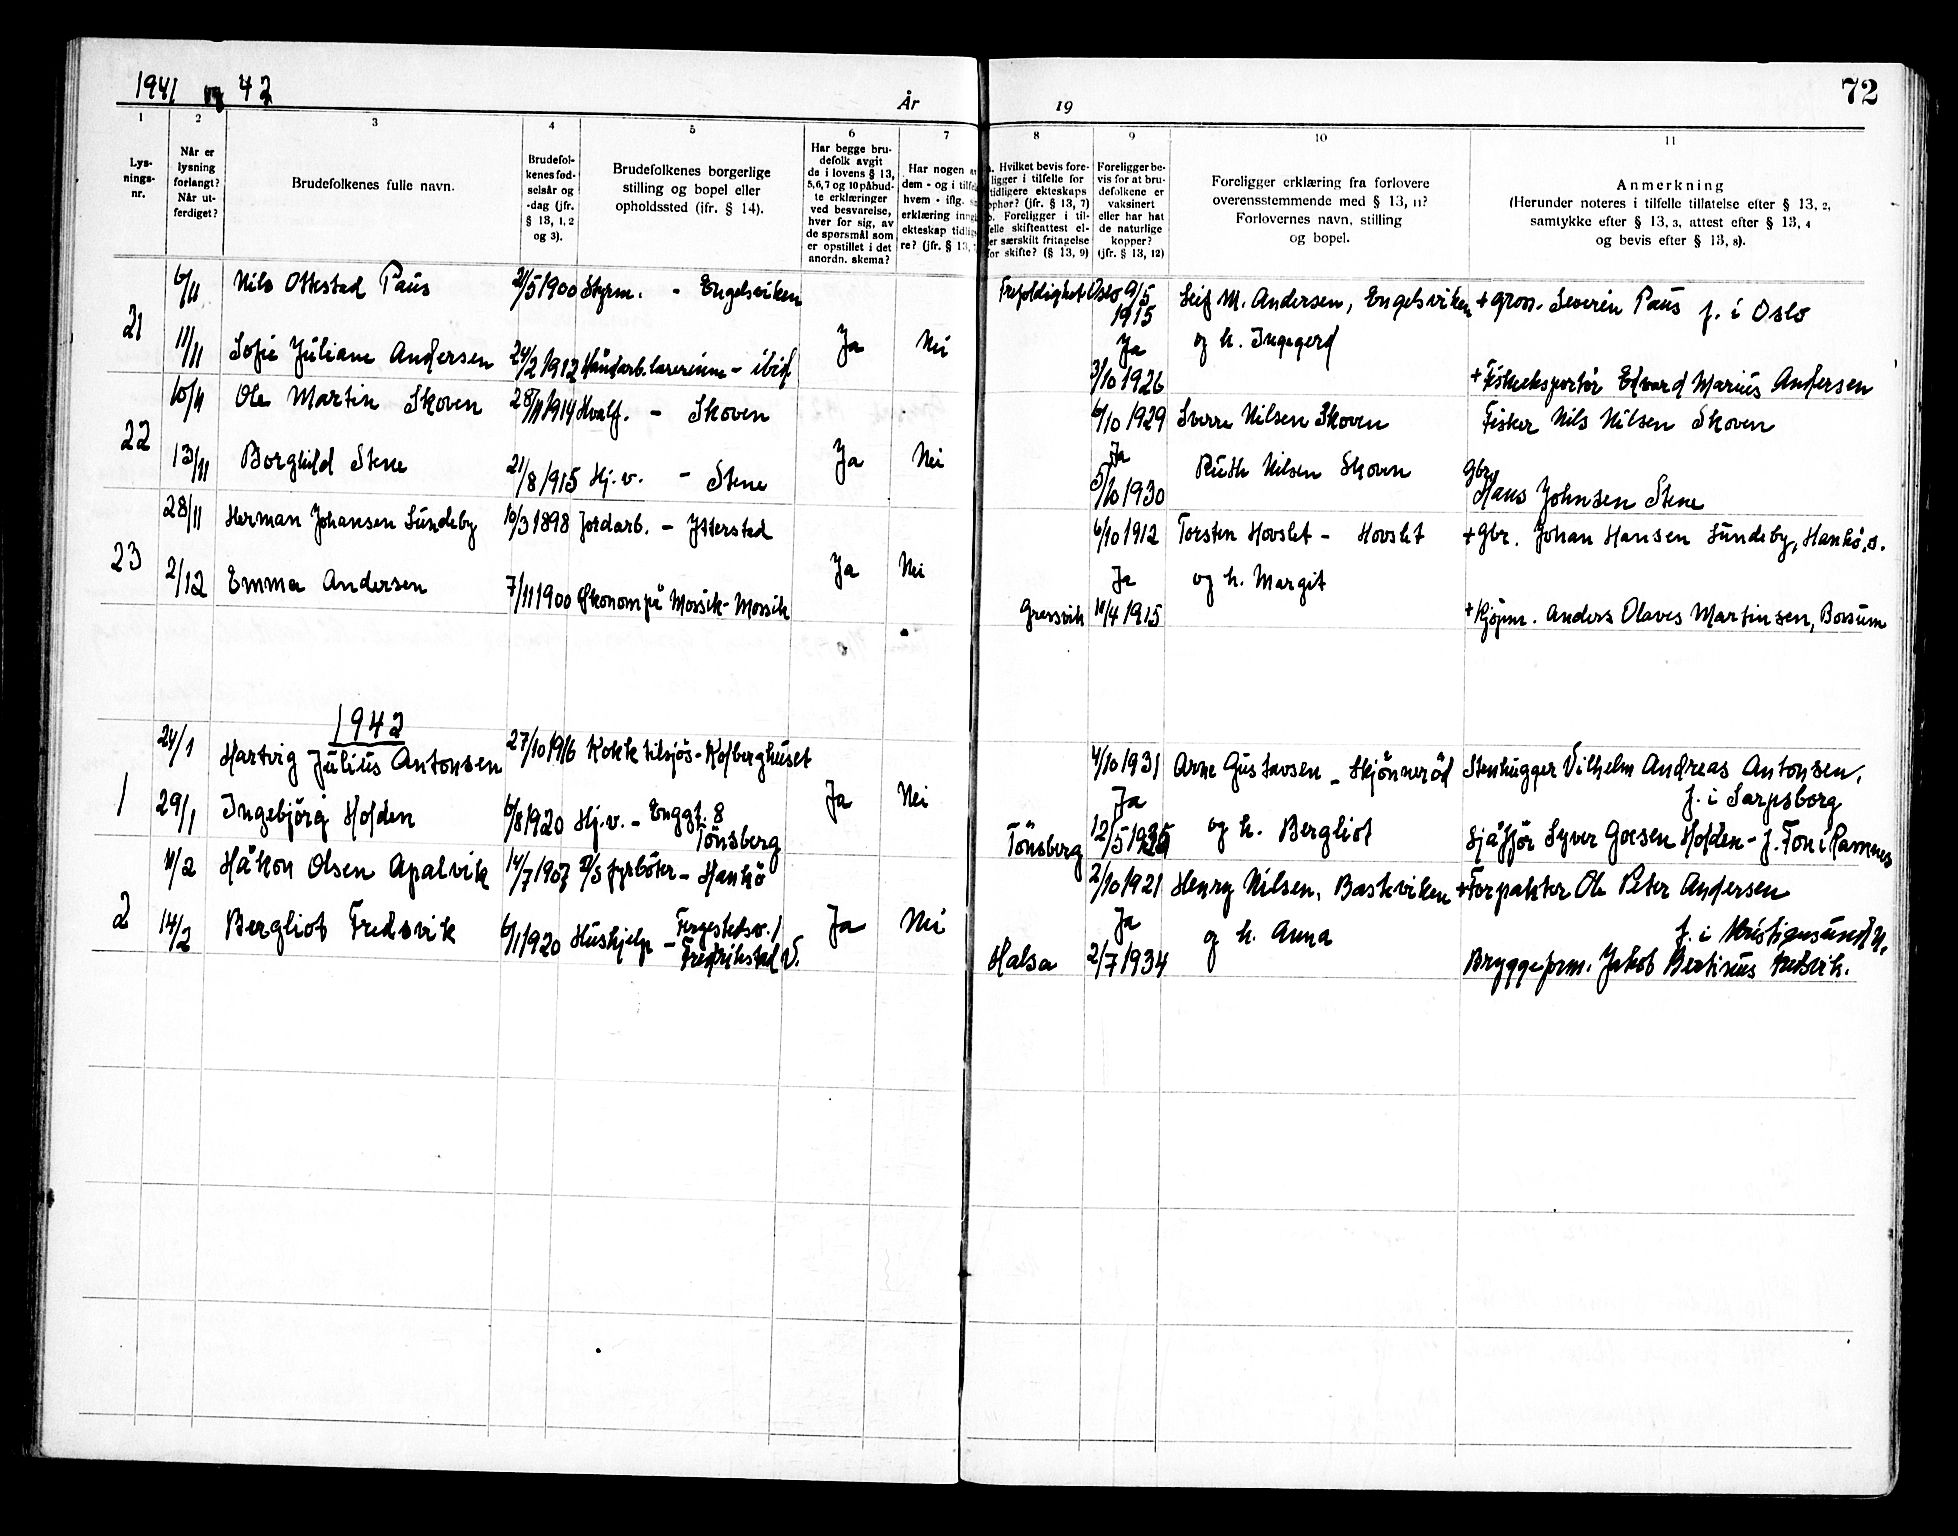 1941 og 42
År
19
72
1 2 3 4 5 6 7 8 9 10 11
Lys-
nings-
nr.
Når er
lysning
forlangt?
Når ut-
ferdiget?
Brudefolkenes fulle navn.
Brudefol-
kenes fød-
selsår og
-dag (jfr.
§ 13, 1, 2
og 3).
Brudefolkenes borgerlige
stilling og bopel eller
opholdssted (ifr. § 14).
Har begge bru-
defolk avgit
de i lovens § 13,
5,6,7 og 10 påbud-
te erklæringer
ved besvarelse,
hver for sig, av
de spørsmål som
er opstillet i det
anordn. skema?
Har nogen a
dem - og i tilfe
hvem - iflg. s
erklæring inng
ekteskap tidlig
re? (jfr. § 13,
a. Hvilket bevis fore-
ligger i tilfelle for
tidligere ekteskaps
ophør? (jfr. § 13, 7)
b. Foreligger i til-
felle skifteattest el-
ler særskilt fritagelse
for skifte? (§ 13, 9)
Foreligger be-
vis for at bru-
defolkene er
vaksinert
eller har hat
de naturlige
kopper?
(jfr. § 13, 12)
Foreligger erklæring fra forlovere
overensstemmende med § 13, 11?
Forlovernes navn, stilling
og bopel.
Anmerkning
(Herunder noteres i tilfelle tillatelse efter § 13, 2,
samtykke efter § 13, 3, attest efter § 13, 4
og bevis efter § 13, 8).
6/11 Nils Ottestad Paus 21/5 1900 Styrm. - Engelsviken Trefoldighet Oslo 9/5 1915 Leif M. Andersen, Engelsviken + gros. Severin Paus f. i Oslo
21 Ja Nei Ja og h. Ingegerd
11/11 Sofie Juliane Andersen 24/2 1912 Håndarb.lærerinne - ibid 3/10 1926 + Fiskeeksportør Edvard Marius Andersen
10/11 Ole Martin Skoven 28/11 1914 Hvalf. - Skoven 6/10 1929 Sverre Nilsen Skoven Fisker Nils Nilsen Skoven
22 Ja Nei Ja Ruth Nilsen Skoven
13/11 Borghild Stene 21/8 1915 Hj.v. - Stene 5/10 1930 Gbr. Hans Johnsen Stene
28/11 Herman Johansen Sundeby 10/3 1898 Jordarb. - Ytterstad 6/10 1912 Torsten Hovslet - Hovslet + Gbr. Johan Hansen Sundeby, Hankö, ø.
23 Ja Nei Ja og h. Margit
2/12 Emma Andersen 7/11 1900 Økonom på Mossik - Mossik Gressvik 18/4 1915 + Kjøpm. Anders Olaves Martinsen, Borsum
1942
24/1 Hartvig Julius Antonsen 27/10 1916 Kokk tilsjös - Kolberghuset 4/10 1931 Arne Gustavsen - Skjönneröd Stenhugger Vilhelm Andreas Antonsen,
f. i Sarpsborg
1 Ja Nei Ja og h. Bergliot
29/1 Ingebjörg Hofden 6/8 1920 Hj.v. - Enggt. 8
Tönsberg Tönsberg 12/5 1935 Sjåfför Syver Hofden - f. Ton i Ramnes
11/2 Håkon Olsen Apalvik 14/7 1907 D/S fyrböter - Hankö 2/10 1921 Henry Nilsen, Bastviken + Forpakter Ole Peter Andersen
f. i Kristiansund N.
2 Ja Nei Ja og h. Anna
14/2 Bergliot Fredsvik 6/1 1920 Hushjelp - Fergestedsv. 1
Fredrikstad V. Halsa 2/7 1934 Bryggeform. Jakob Bertinus Fredsvik.